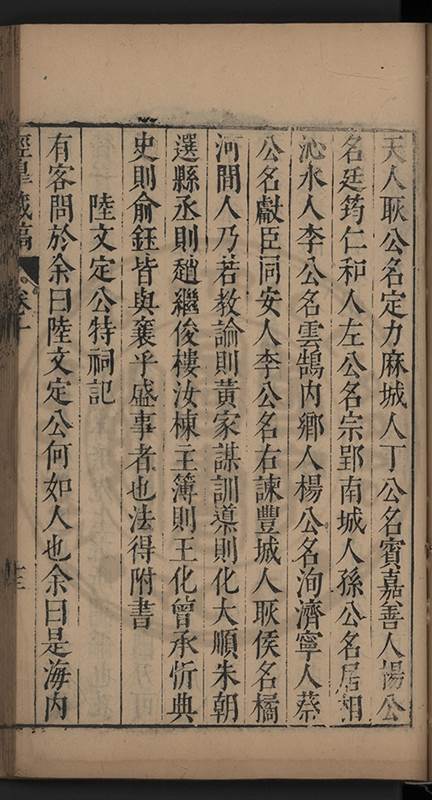 天人耿公名定力麻城人丁公名賓嘉善人楊公
名廷筠仁和人左公名宗郢南城人孫公名居相
沁水人李公名雲鵠內鄉人楊公名洵濟寧人蔡
公名獻臣同安人李公名右諫豐城人耿侯名橘
河間人乃若教諭則黃家謀訓導則化大順朱朝
選縣丞則趙繼俊樓汝棟主簿則王化曾承忻典
史則俞鈺皆與襄乎盛事者也法得附書
陸文定公特祠記
有客問於余曰陸文定公何如人也余曰是海內
涇皐藏稿 卷十 十三